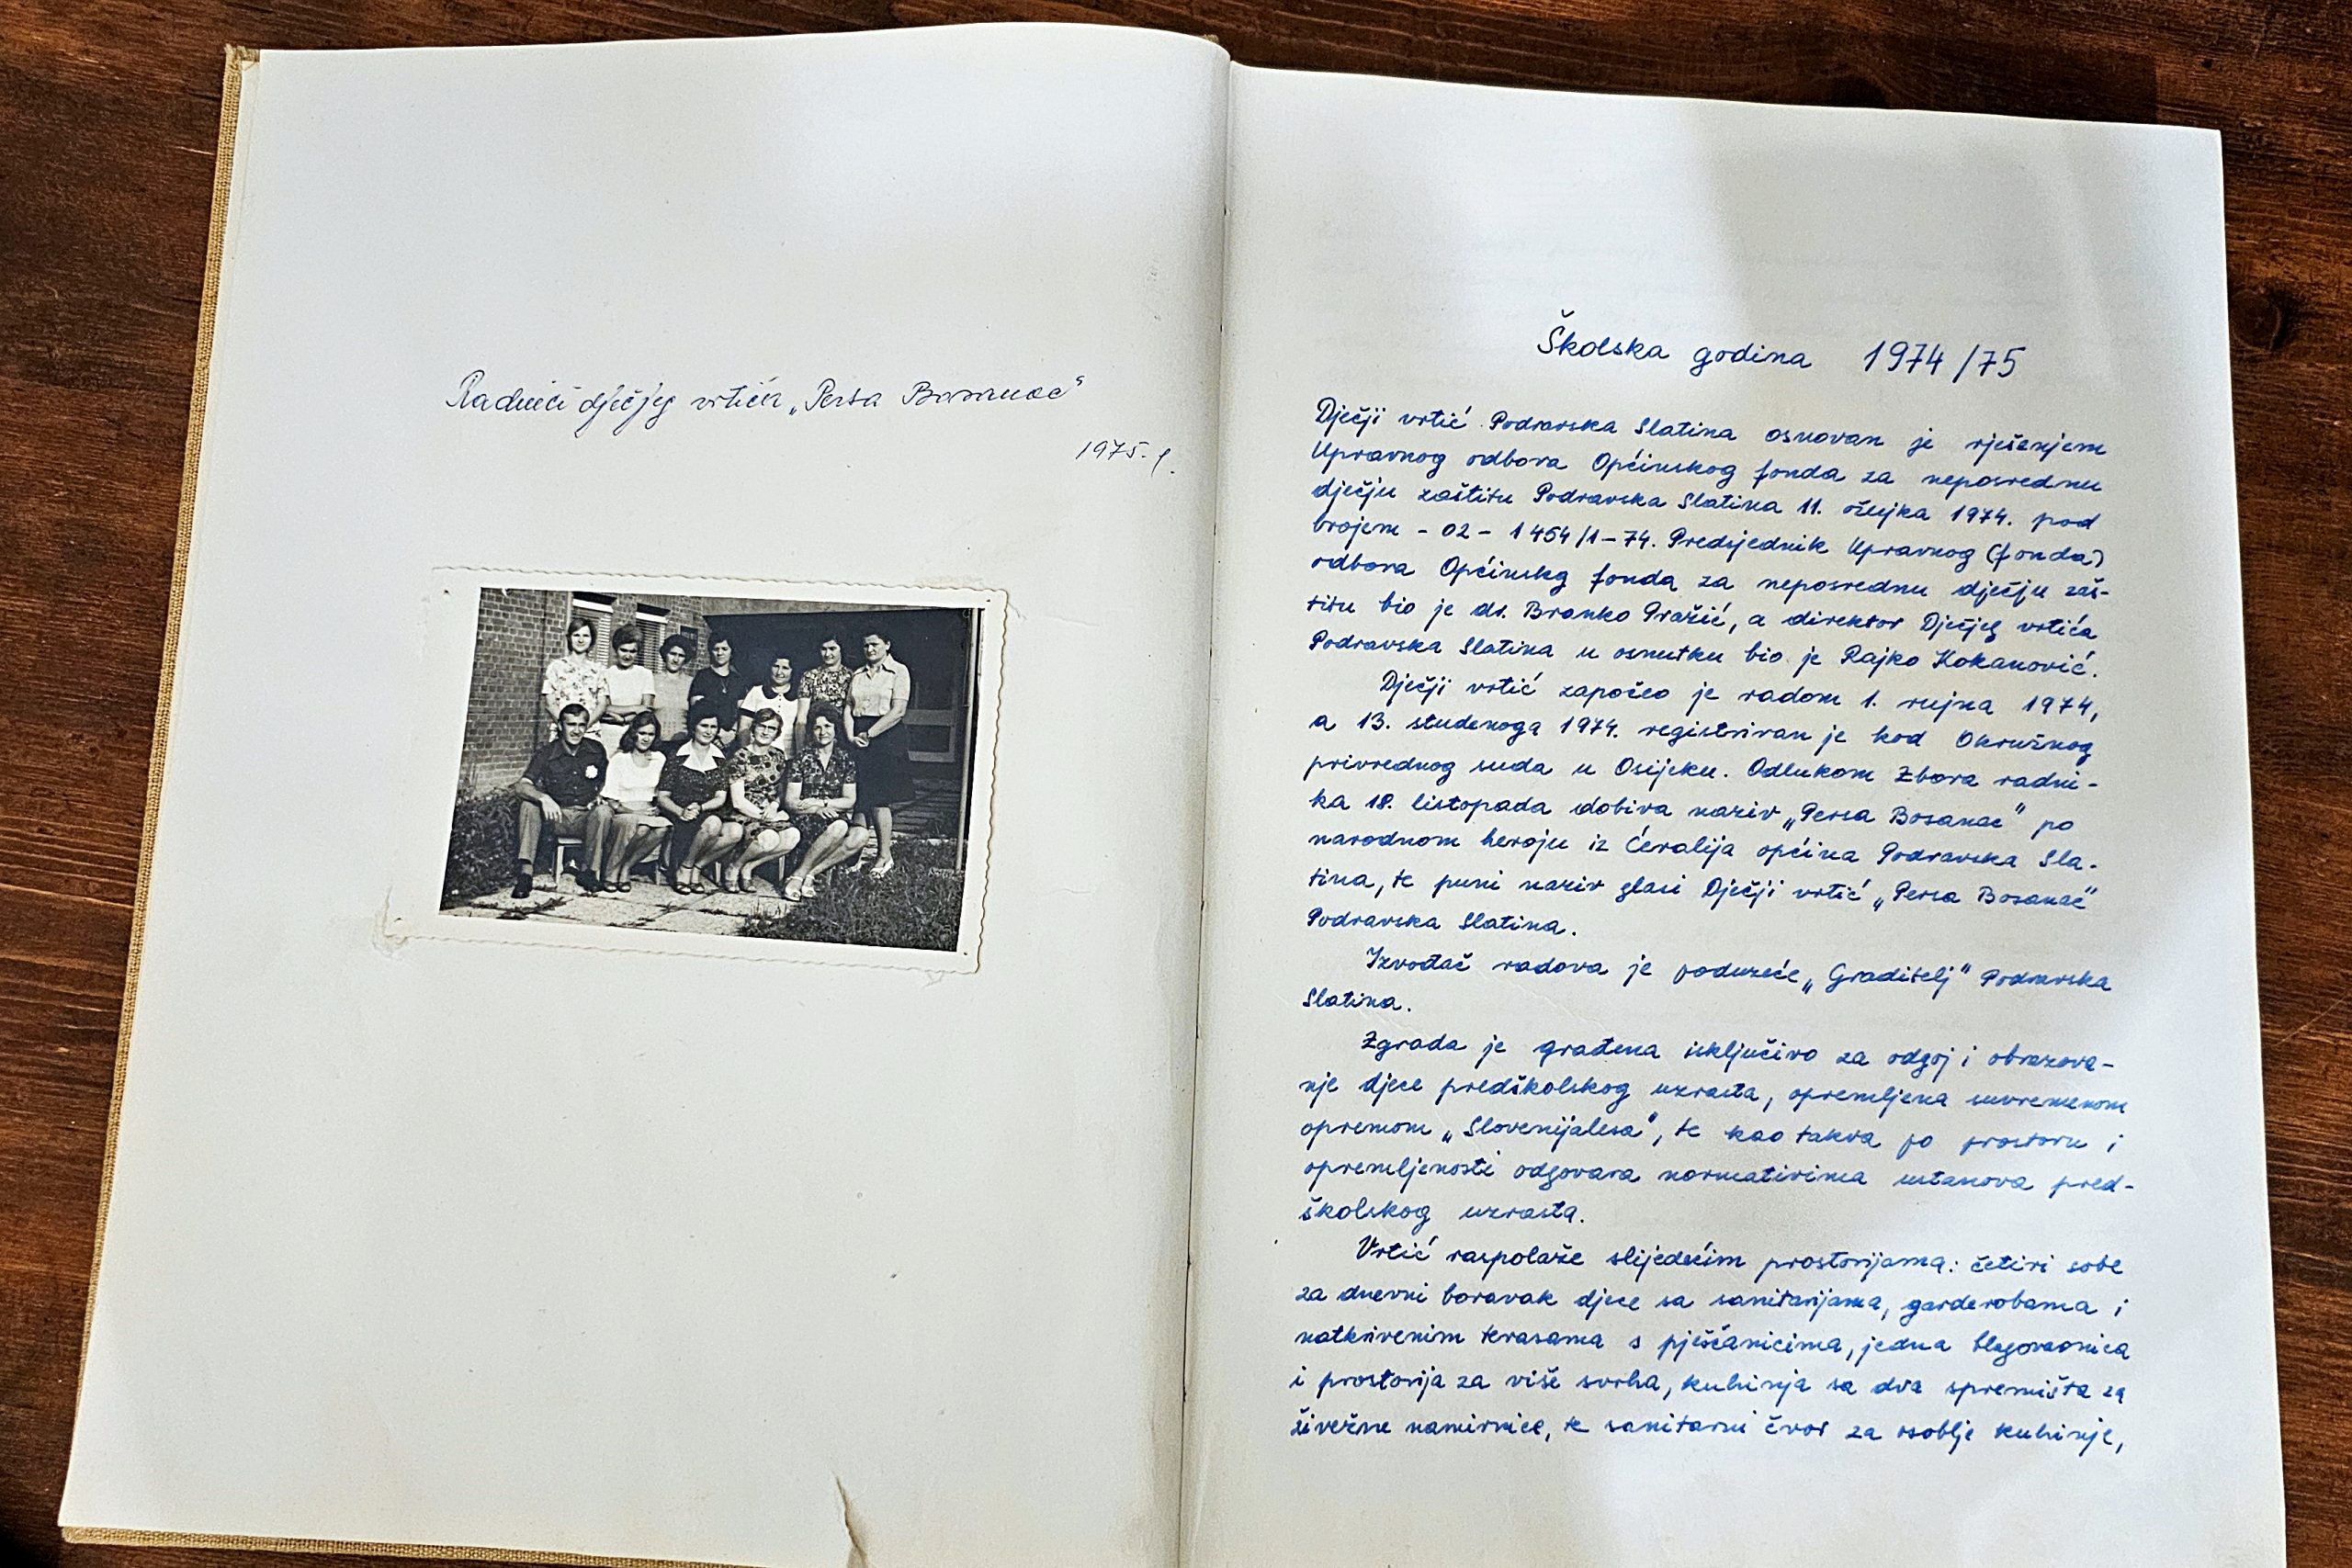 Radnici dječjeg vrtića „Persa Bosanac"
1975. g.
Školska godina 1974/75
Dječji vrtić Podravska Slatina osnovan je rješenjem
Upravnog odbora Općinskog fonda za neposrednu
dječju zaštitu Podravska Slatina 11. ožujka 1974. pod
brojem - 02 - 1454/1-74. Predsjednik Upravnog (fonda)
odbora Općinskog fonda za neposrednu dječju zaš-
titu bio je dr. Branko Pražić, a direktor Dječjeg vrtića
Podravska Slatina u osnutku bio je Rajko Kokanović.
Dječji vrtić započeo je radom 1. rujna 1974,
a 13. studenoga 1974. registriran je kod Okružnog
privrednog suda u Osijeku. Odlukom Zbora radni-
ka 18. listopada dobiva naziv „Persa Bosanac" po
narodnom heroju iz Ćeralija općina Podravska Sla-
tina, te puni naziv glasi Dječji vrtić „Persa Bosanac"
Podravska Slatina.
Izvođač radova je poduzeće „Graditelj" Podravska
Slatina.
Zgrada je građena isključivo za odgoj i obrazova-
nje djece predškolskog uzrasta, opremljena suvremenom
opremom „Slovenijalesa", te kao takva po prostoru i
opremljenosti odgovara normativima ustanova pred-
školskog uzrasta.
Vrtić raspolaže slijedećim prostorijama: četiri sobe
za dnevni boravak djece sa sanitarijama, garderobama i
natkrivenim terasama s pješčanicima, jedna blagovaonica
i prostorija za više svrha, kuhinja sa dva spremišta za
živežne namirnice, te sanitarni čvor za osoblje kuhinje,